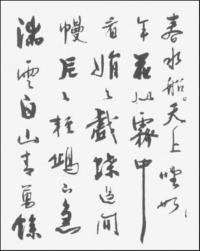 春水船如天上坐老
年花似霧中
看娟々戲蝶過間
幔片々輕鷗下急
湍雲白山青萬餘